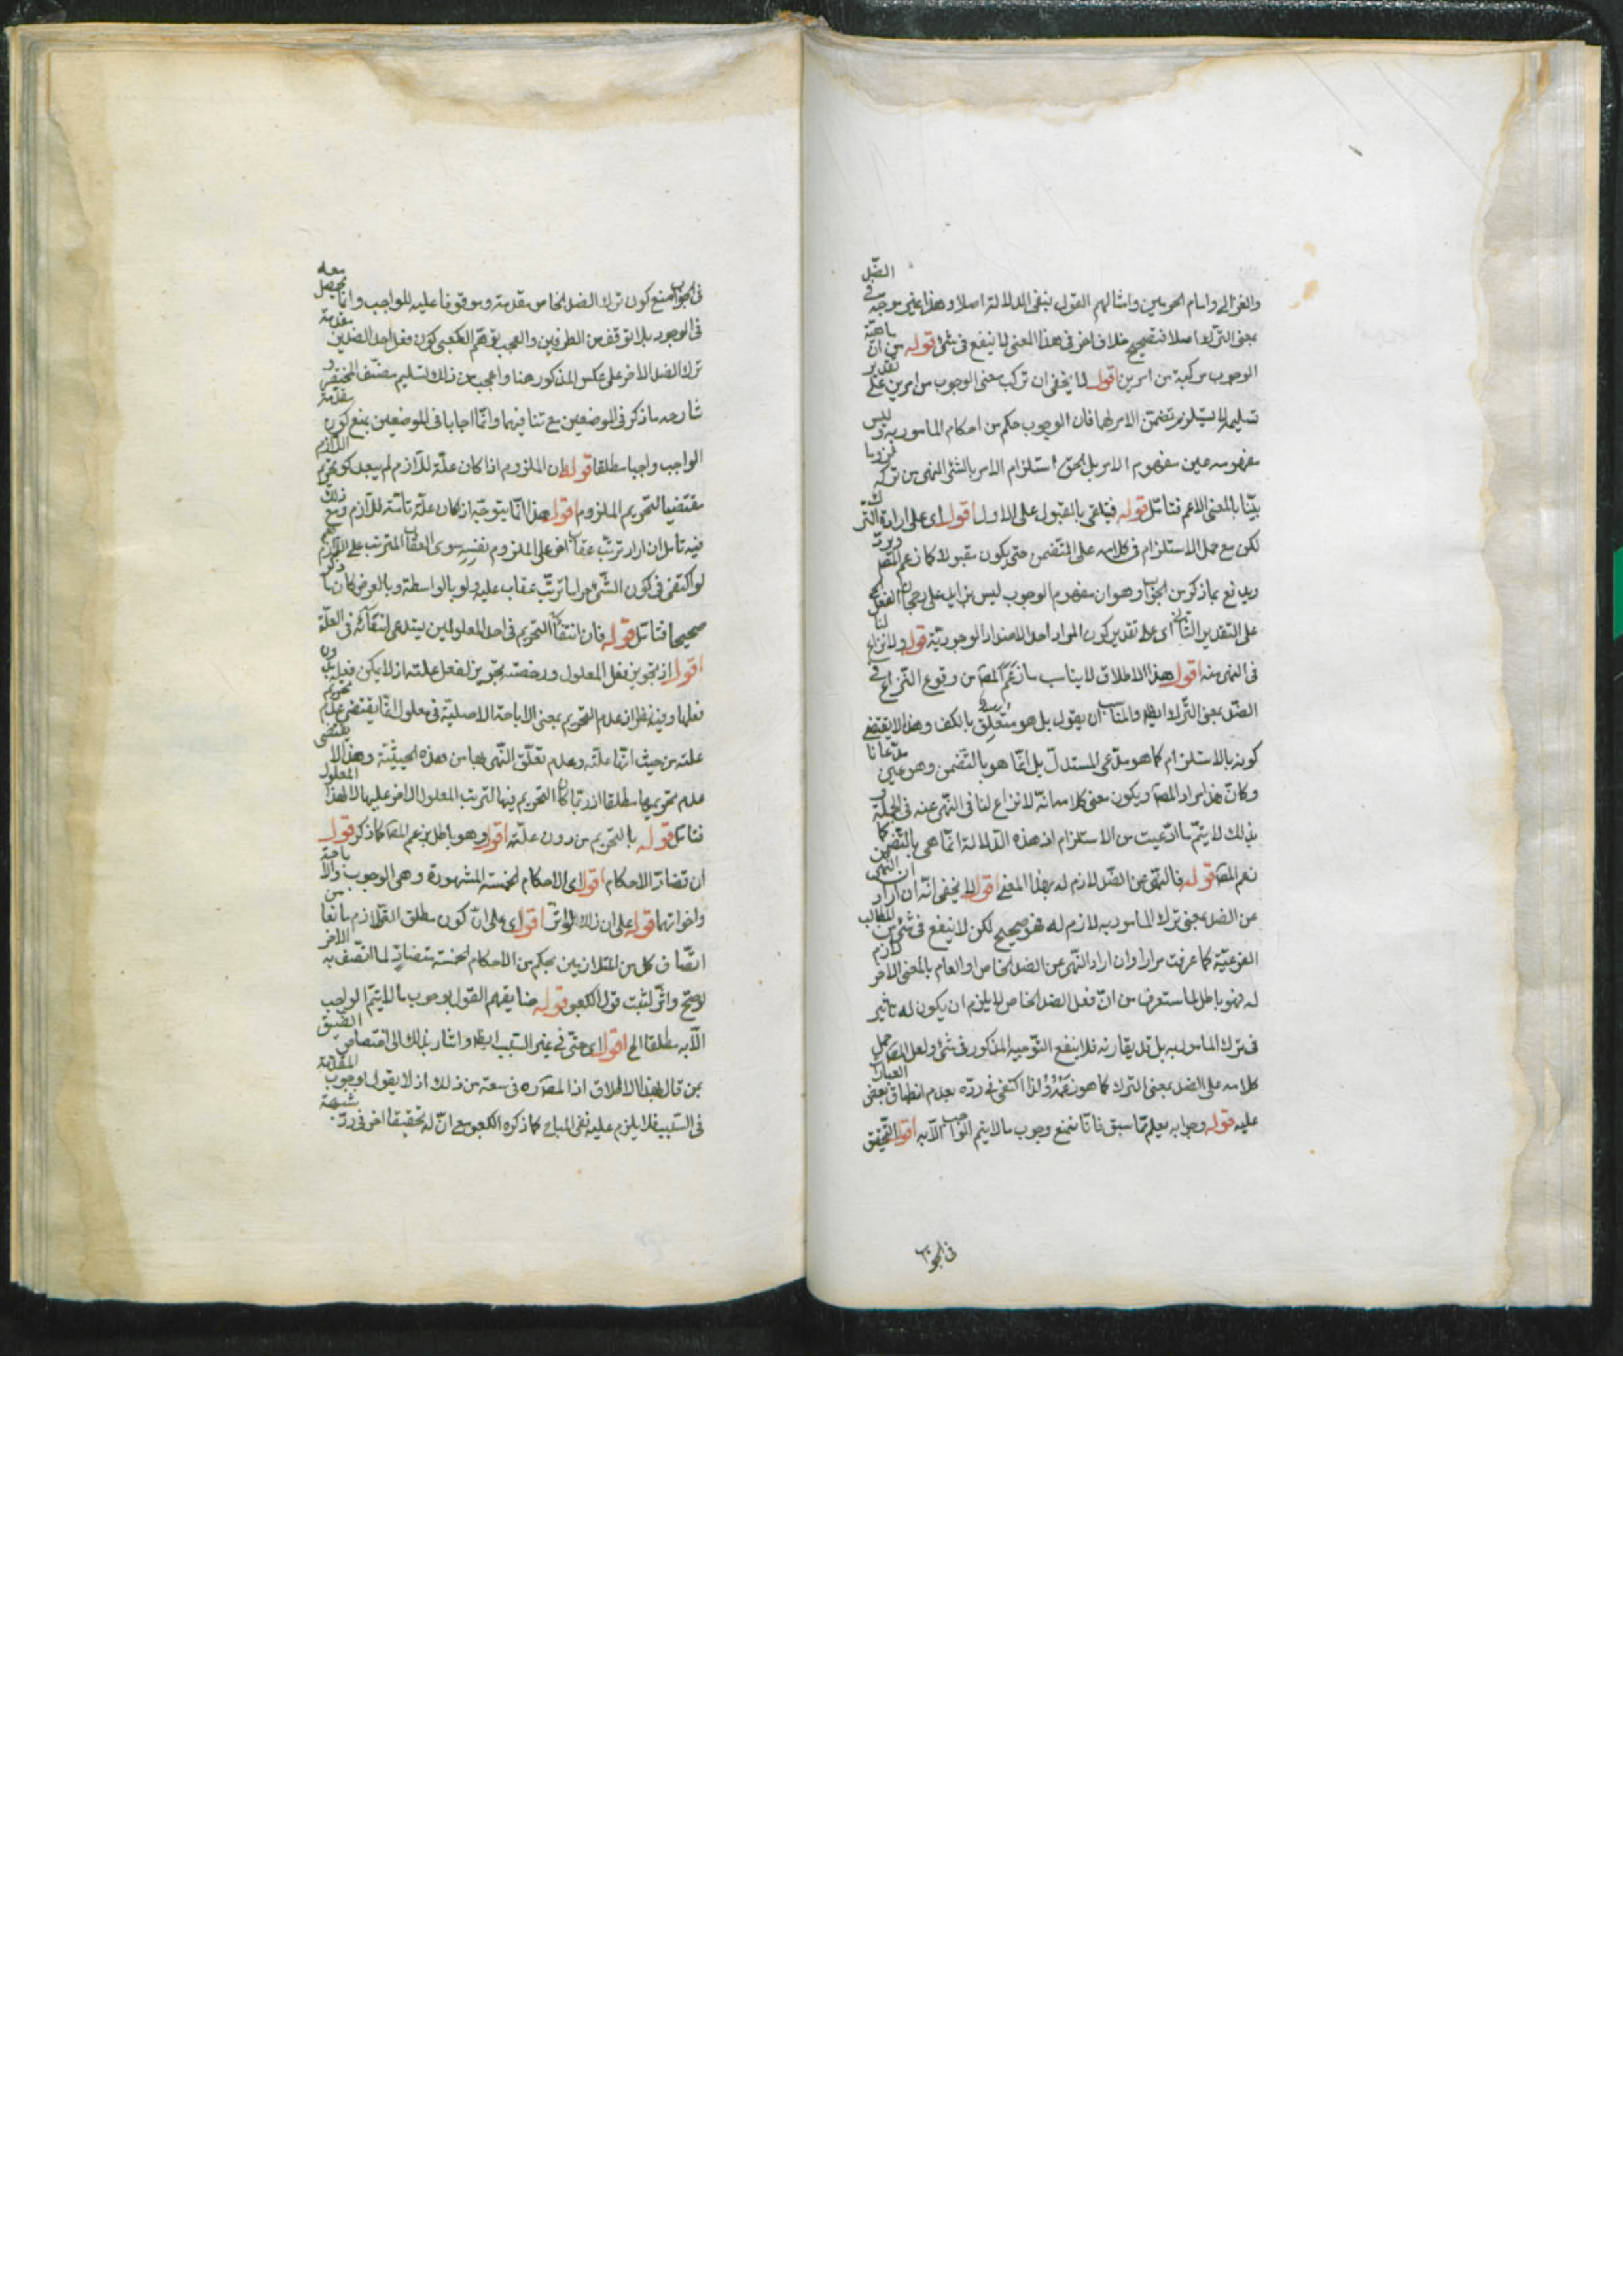 والغزالى وامام الحرمين وامثالهم القول بنفى الدلالة اصلا وهذا غير موجّه فى الضّد
بمعنى الترك اصلا فتصحيح خلاف اخر فى هذا المعنى لا ينفع فى شئ قوله من ان ماهيّة
الوجوب مركبة من امرين اقول لا يخفى ان تركب معنى الوجوب من امرين على تقدير
تسليمه لا يستلزم تضمن الامر لهما فان الوجوب حكم من احكام المامور به وليس
مفهومه عين مفهوم الامر بل الحق استلزام الامر بالشئ النهى عن تركه لزوما
بيّنا بالمعنى الاعم فتامّل قوله فيلقى بالقبول على الاول اقول اى على ارادة الترك
لكن مع حمل الاستلزام فى كلامه على التضمن حتى يكون مقبولا كما زعم المص ويردّ
ويدفع بما ذكر من الجواب وهو ان مفهوم الوجوب ليس بزايد على رجحان الفعل
على التقدير الثانى اى على تقدير كون المراد احد الاضداد الوجوديّة قوله ولا نزاع لنا
فى النهى عنه اقول هذا الاطلاق لا يناسب ما زعم المص من وقوع النزاع فى
الضّد بمعنى التّرك ايض والمناسب ان يقول بل هو متعلق بالكف وهذا لا يقتضى
كونه بالاستلزام كما هو مدّعى المستدلّ بل انّما هو بالتضمن وهو عين مدّعانا
وكانّ هذا مراد المص ويكون معنى كلامه انّه لا نزاع لنا فى النهى عنه فى الجملة و
بذلك لا يتمّ ما ادّعيت من الاستلزام اذ هذه الدّلالة انّما هى بالتّضمن كما
زعم المص قوله فالنهى عن الضّد لازم له بهذا المعنى اقول لا يخفى انّه ان اراد ان النهى
عن الضد بمعنى ترك المامور به لازم له فهو صحيح لكن لا ينفع فى شئ من المطالب
الفرعيّة كما عرفت مرارا وان اراد النّهى عن الضد الخاص او العام بالمعنى الاخر لازم
له فهو باطل لما ستعرف من انّ فعل الضد الخاص لا يلزم ان يكون له تاثير
فى ترك المامور به بل قد يقارنه فلا ينفع التّوجيه المذكور فى شئ ولعل المص حمل
كلامه على الضد بمعنى الترك كما هو ولذا اكتفى فى ردّه بعدم انطباق بعض العبارات
عليه قوله وجوابه يعلم ممّا سبق فانّا نمنع وجوب ما لا يتم الواجب الّا به اقول التحقيق
فى الجواب
فى الجواب منع كون ترك الضد الخاص مقدمة وموقوفا عليه للواجب وانما يحصل معه
فى الوجود بلا توقف من الطرفين والعجب توهّم الكعبى كون فعل احد الضدّين مقدمة
ترك الضد الاخر على عكس المذكور هنا واعجب من ذلك تسليم مصنّف المختصر و
شارحه ما ذكر فى الموضعين مع تنافيهما وانّما اجابا فى الموضعين بمنع كون مقدّمة
الواجب واجبا مطلقا قوله ان الملزوم اذا كان علّة للّازم لم يبعد كون تحريم اللازم
مقتضيا لتحريم الملزوم اقول هذا انّما يتوجّه اذ كان علّة تامّة للّازم ومع ذلك
فيه تامل ان اراد ترتّب عقاب اخر على الملزوم نفسه سوى العقاب المترتب على اللازم نعم
لو اكتفى فى كون الشّئ حراما ترتّب عقاب عليه ولو بالواسطة وبالعرض كان ما ذكره
صحيحا فتامّل قوله فان انتفاء التحريم فى احد المعلولين يستدعى انتفائه فى العلّة
اقول اذ تجويز فعل المعلول ورخصته تجويز لفعل علّته اذ لا يمكن فعله بدون
فعلها وفيه نظر اذ عدم التحريم بمعنى الاباحة الاصليّة فى معلول انّما يقتضى عدم تحريم
علّته من حيث انّها علّته وعدم تعلّق النّهى بها من هذه الحيثيّة وهذا لا يقتضى
عدم تحريمها مطلقا اذ ربّما كان التحريم فيها لترتب المعلول الاخر عليها لا لهذا المعلول
فتامّل قوله بالتحريم من دون علّته اقول وهو باطل بزعم المص كما ذكر قوله
ان تضادّ الاحكام اقول اى الاحكام الخمسة المشهورة وهى الوجوب والاباحة
واخواتهما قوله على ان ذلك لو اثّر اقول اى على انّ كون مطلق التّلازم مانعا من
اتّصاف كل من المتلازمين بحكم من الاحكام الخمسة متضادّ لما اتّصف به الاخر
لو صحّ واثّر لثبت قول الكعبى قوله فما يفهم القول بوجوب ما لا يتمّ الواجب
الّا به مطلقا الخ اقول اى حتّى فى غير السّبب ايض واشار بذلك الى اختصاص الضّيق
بمن قال بهذا الاطلاق اذ المص ره فى سعة من ذلك اذ لا يقول بوجوب المقدّمة
فى غير السّبب فلا يلزم عليه نفى المباح كما ذكره الكعبى مع انّ له تحقيقا اخر فى ردّ شبهة